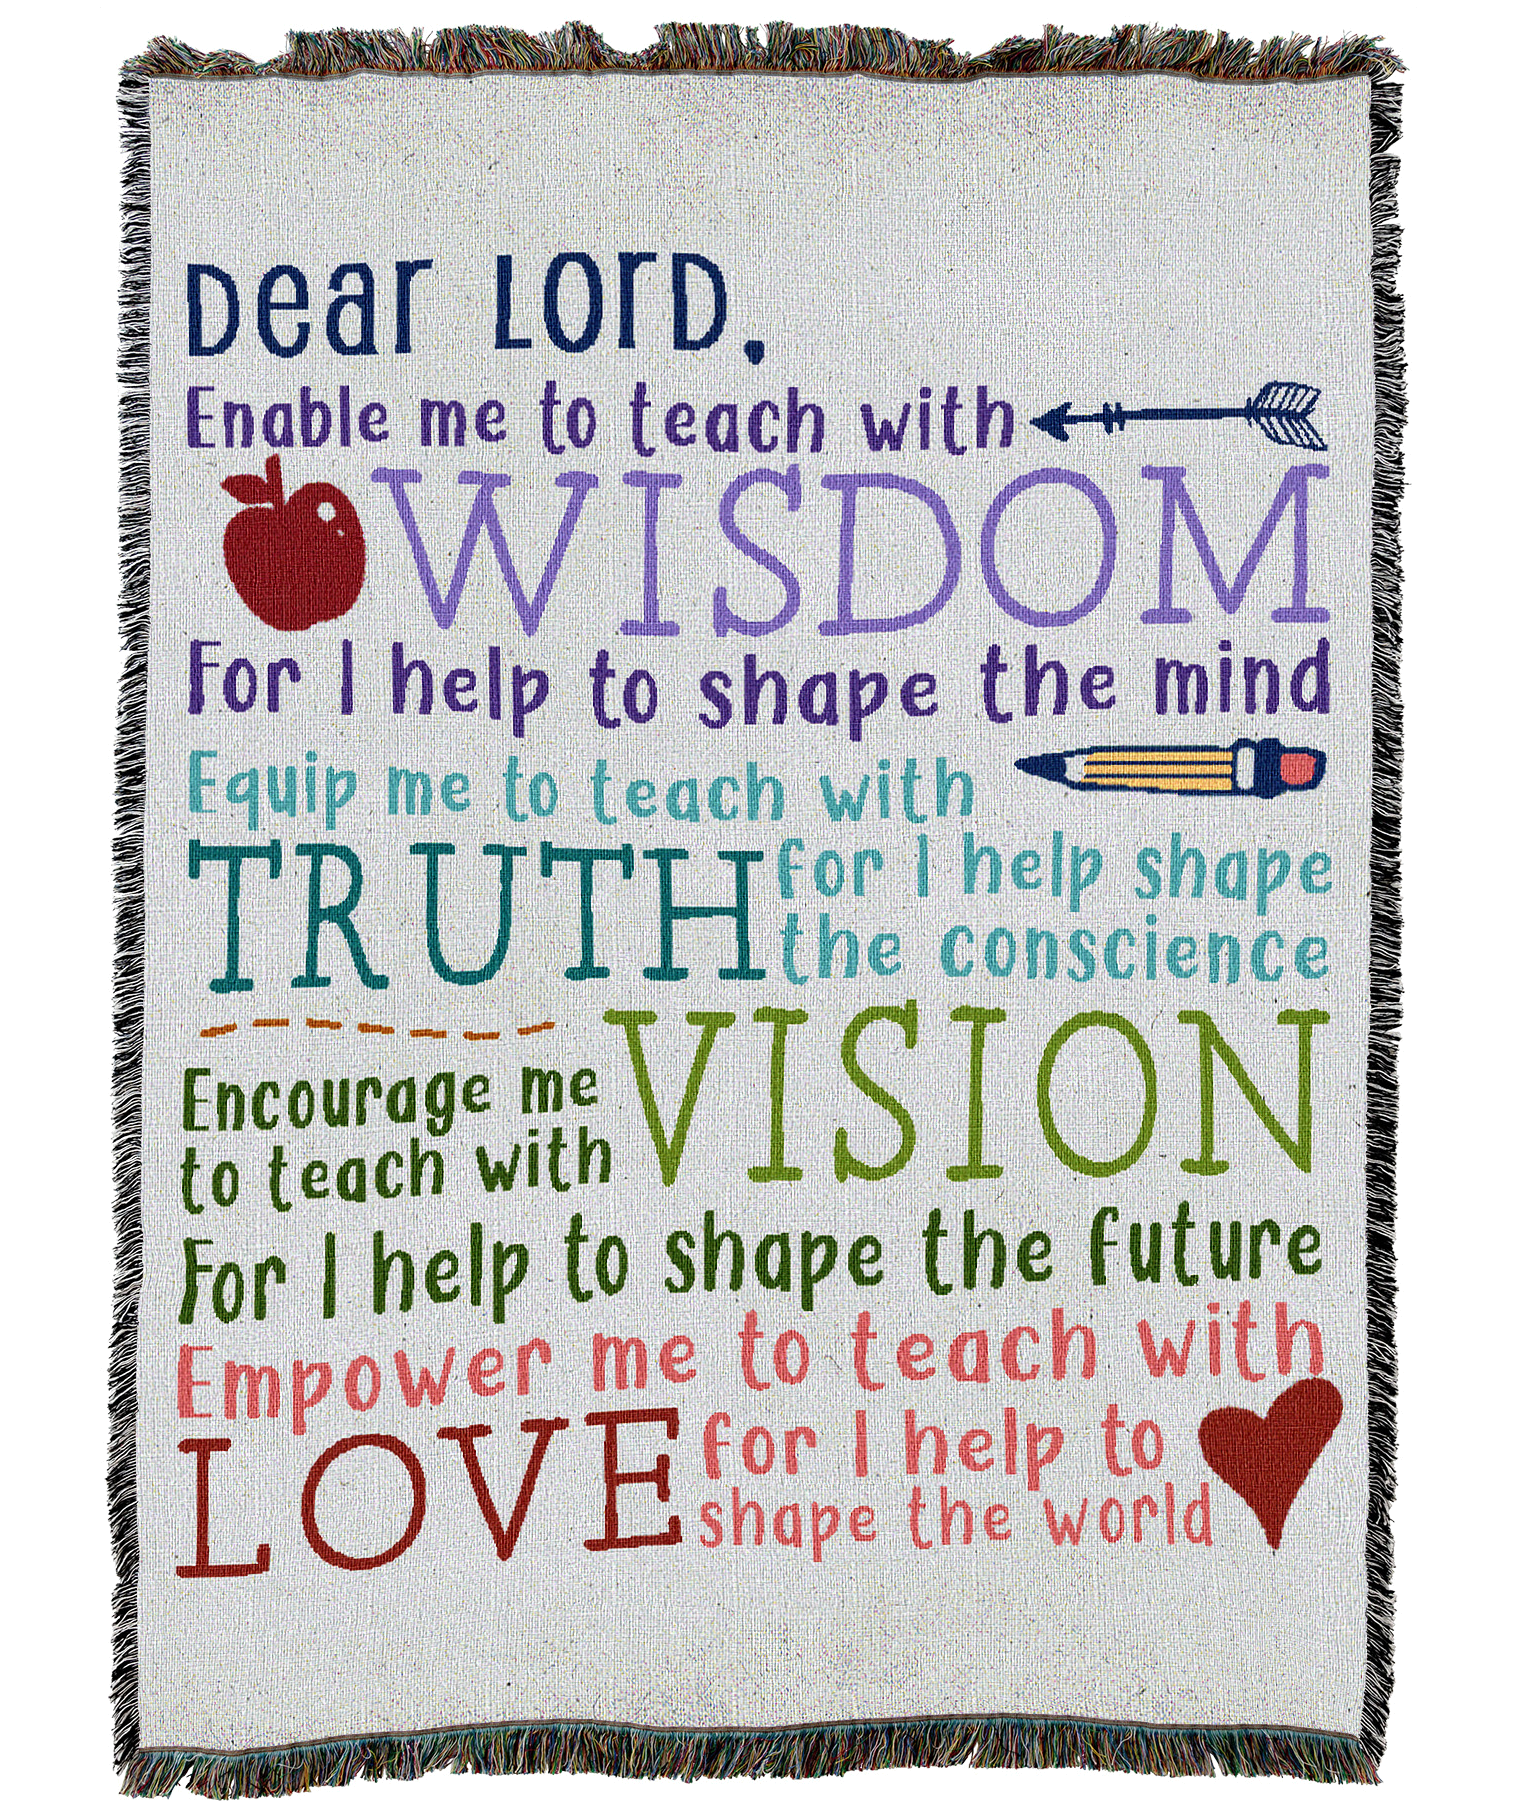 Dear Lord,
Enable me to teach with
WISDOM
For I help to shape the mind
Equip me to teach with
TRUTH for I help shape
the conscience
VISION
Encourage me
to teach with
For I help to shape the future
Empower me to teach with
LOVE for I help to
shape the world